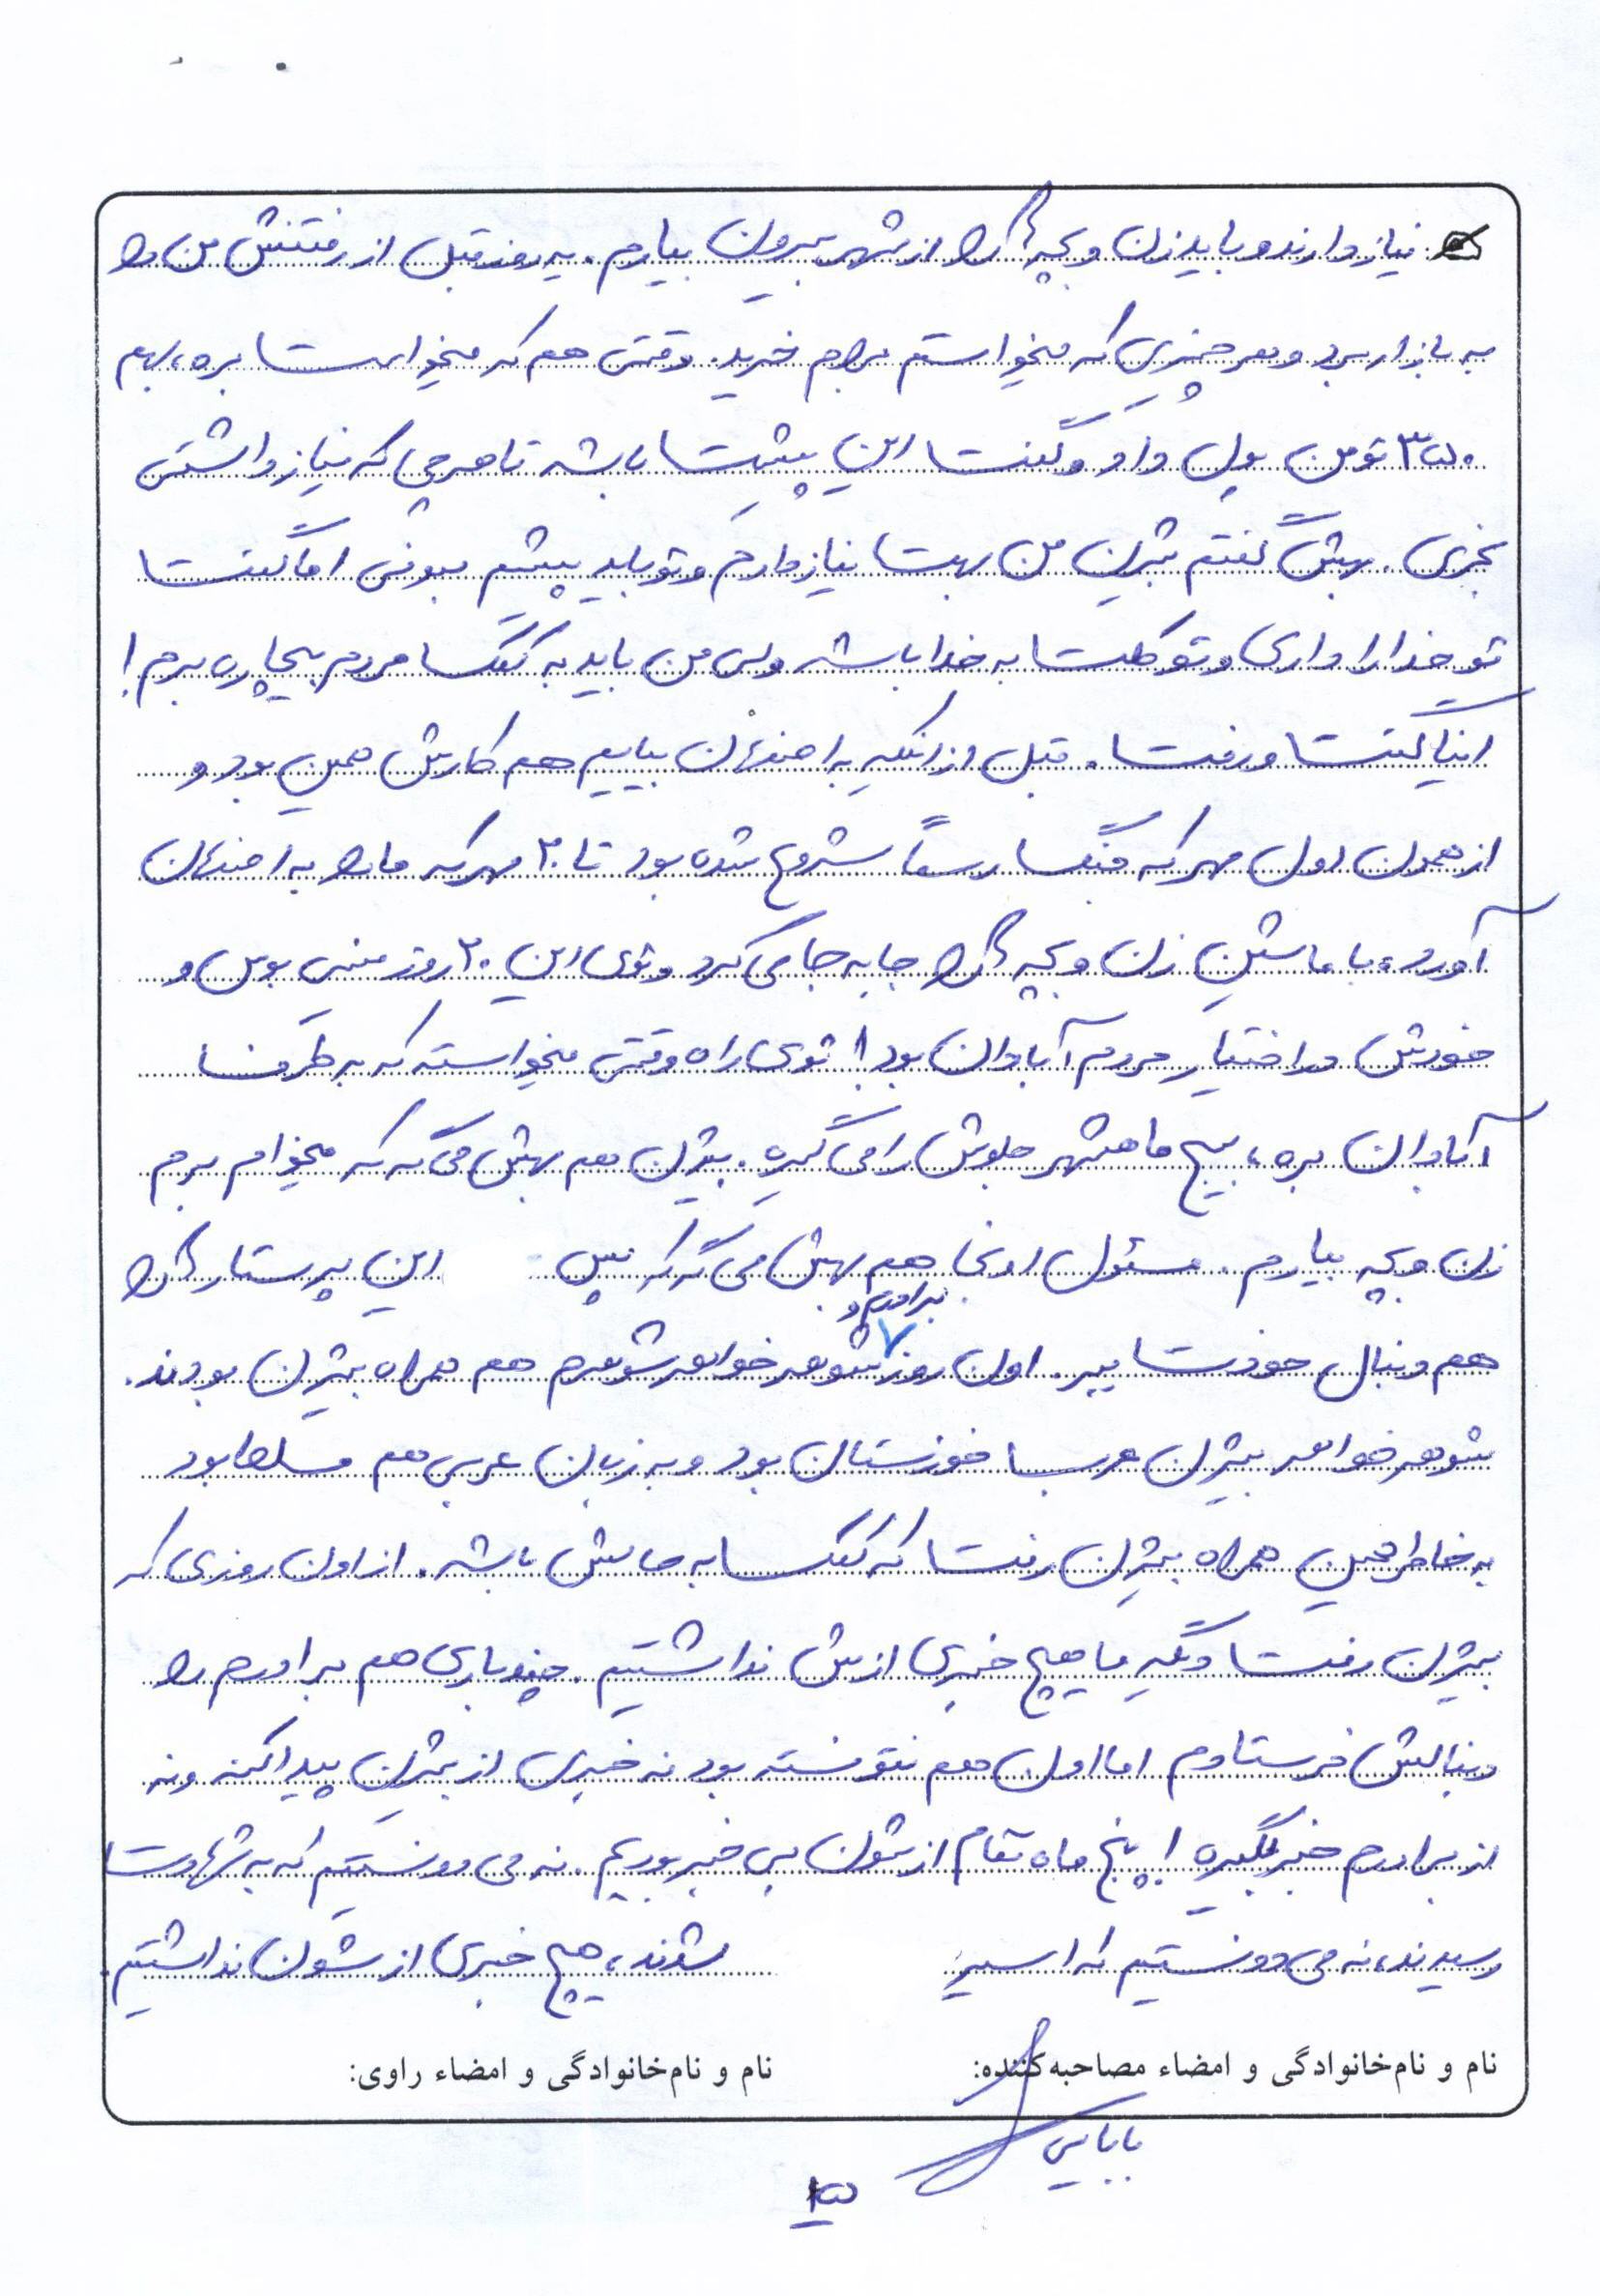 نیاز دارند و باید زن و بچه‌ها را از شهر بیرون بیارم. یه روز قبل از رفتنش من را
به بازار برد و هر چیزی که میخواستم برام خرید. وقتی هم که میخواست بره، بهم
۳۵۰ تومن پول داد و گفت این پیشت باشه تا هرچی که نیاز داشتی
بخری. بهش گفتم بیژن من بهت نیاز دارم و تو باید پیشم بمونی اما گفت
تو خدا را داری و توکلت به خدا باشه ولی من باید به کمک مردم بیچاره برم!
اینا گفت و رفت. قبل از اینکه به اصفهان بیاییم هم کارش همین بود و
از همون اول مهر که جنگ رسماً شروع شده بود تا ۲۰ مهر که ما را به اصفهان
آورد، با ماشین زن و بچه‌ها را جا به جا می‌کرد و توی این ۲۰ روز مینی بوس و
خودش در اختیار مردم آبادان بود! توی راه وقتی میخواسته که به طرف
آبادان بره، بسیج ماهشهر جلوش را می‌گیره. بیژن هم بهش می‌گه که میخوام برم
زن و بچه بیارم. مسئول اونجا هم بهش می‌گه که پس این پرستارها را
هم دنبال خودت ببر. اون روز برادرم و شوهر خواهر شوهرم هم همراه بیژن بودند.
شوهر خواهر بیژن عرب خوزستان بود و به زبان عربی هم مسلط بود
به خاطر همین همراه بیژن رفت که کمک به حالش باشه. از اون روزی که
بیژن رفت دیگه ما هیچ خبری ازش نداشتیم. چندباری هم برادرم را
دنبالش فرستادم اما اون هم نتونسته بود نه خبری از بیژن پیدا کنه و نه
از برادرم خبر بگیره! پنج ماه تمام ازشون بی خبر بودیم. نه می‌دونستیم که به شهادت
رسیدند، نه می‌دونستیم که اسیر شدند، هیچ خبری ازشون نداشتیم.
نام و نام‌خانوادگی و امضاء مصاحبه‌کننده: نام و نام‌خانوادگی و امضاء راوی:
بابایی
۱۵